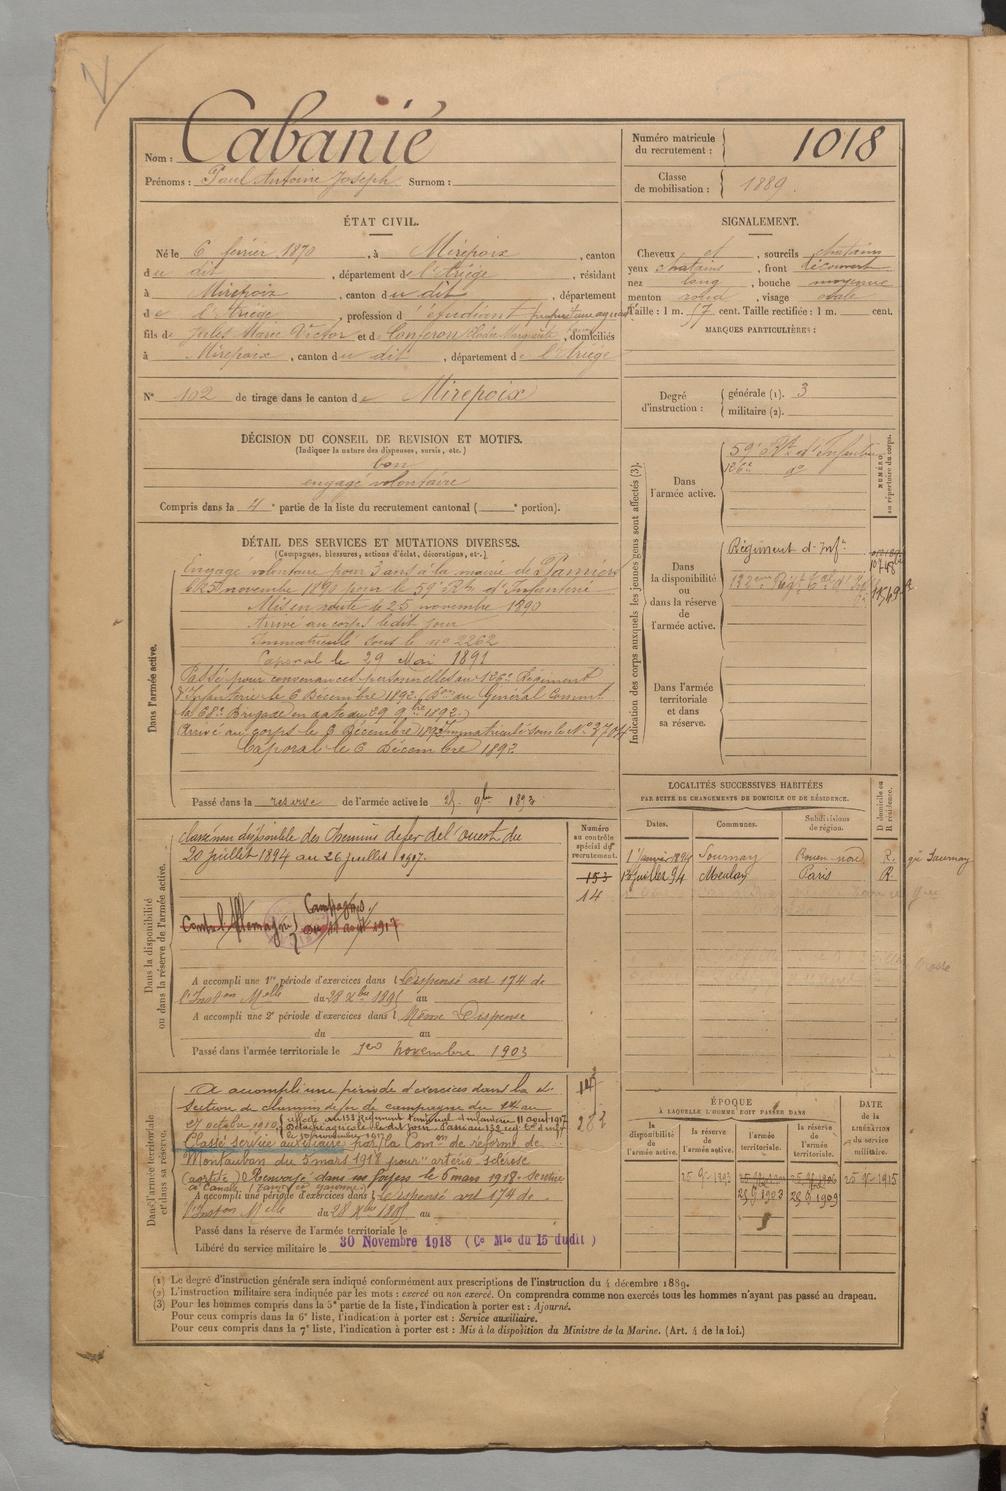 Nom : Cabanié
Prénoms : Paul Antoine Joseph Surnom :
Numéro matricule du recrutement : 1018
Classe de mobilisation : 1889.
ÉTAT CIVIL.
Né le 6 février 1870, à Mirepoix, canton
du dit, département de l'Ariège, résidant
à Mirepoix, canton du dit, département
de l'Ariège, profession d'étudiant
fils de Jules Marie Victor et de Conferon, domiciliés
à Mirepoix, canton du dit, département de l'Ariège
N° 102 de tirage dans le canton de Mirepoix
SIGNALEMENT.
Cheveux et, sourcils chatains
yeux chatains, front découvert
nez long, bouche moyenne
menton rond, visage ovale
Taille : 1 m. 57 cent. Taille rectifiée : 1 m. cent.
MARQUES PARTICULIÈRES :
Degré d'instruction : générale (1). 3
militaire (2).
DÉCISION DU CONSEIL DE REVISION ET MOTIFS.
(Indiquer la nature des dispenses, sursis, etc.)
bon
engagé volontaire
Compris dans la 4e partie de la liste du recrutement cantonal ( e portion).
DÉTAIL DES SERVICES ET MUTATIONS DIVERSES.
(Campagnes, blessures, actions d'éclat, décorations, etc.)
Dans l'armée active.
Engagé volontaire pour 3 ans à la mairie de Pamiers
le 25 novembre 1890 pour le 59e Rt d'Infanterie
Mis en route le 25 novembre 1890
Arrivé au corps le dit jour
Immatriculé sous le no 2262
Caporal le 29 Mai 1891
Passé pour convenances personnelles au 126e Régiment
d'Infanterie le 6 Décembre 1892 (Don du Général Commt
la 68e Brigade en date du 29 9bre 1892)
Arrivé au corps le 6 Décembre 1892 immatriculé sous le No 3704
Caporal le 6 Décembre 1892
Passé dans la réserve de l'armée active le 25 9bre 1893
Indication des corps auxquels les jeunes gens sont affectés (3).
NUMÉRO au répertoire du corps.
Dans l'armée active.
59e Rt d'Infanterie
126e do
Dans la disponibilité ou dans la réserve de l'armée active.
Régiment d'Infie
10748
132eme Regt
Dans l'armée territoriale et dans sa réserve.
LOCALITÉS SUCCESSIVES HABITÉES
PAR SUITE DE CHANGEMENTS DE DOMICILE OU DE RÉSIDENCE.
Dates. Communes. Subdivisions de région. D domicile ou R résidence.
1er janvier 1894 Gournay Rouen-nord R.
13 juillet 94 Meulan Paris R.
Dans la disponibilité ou dans la réserve de l'armée active.
Numéro au contrôle spécial du recrutement.
153
14
Classé non disponible des Chemins de fer de l'Ouest du
20 juillet 1894 au 26 juillet 1917.
Campagnes
Contre l'Allemagne
A accompli une 1re période d'exercices dans Dispensé art 174 de
l'Inston Melle du 28 Xbre 1895 au
A accompli une 2e période d'exercices dans Même Dispense
du au
Passé dans l'armée territoriale le 1er novembre 1903
Dans l'armée territoriale et dans sa réserve.
A accompli une période d'exercices dans la
section de chemins de fer de campagne du 14 au
27 octobre 1910.
Classé service auxiliaire par la Comon de réforme de
Montauban du 5 mars 1918 pour "artério sclérose
(aortite) Renvoyé dans ses foyers le 6 mars 1918
A accompli une période d'exercices dans Dispensé art 174 de
l'Inston Melle du 28 Xbre 1895 au
Passé dans la réserve de l'armée territoriale le
Libéré du service militaire le 30 Novembre 1918 (Ce Mle du 15 dudit)
ÉPOQUE
À LAQUELLE L'HOMME DOIT PASSER DANS
la disponibilité de l'armée active. la réserve de l'armée active. l'armée territoriale. la réserve de l'armée territoriale. DATE de la LIBÉRATION du service militaire.
25 9bre 1893 25 9bre 1915
25 9 1903 25 9 1909
(1) Le degré d'instruction générale sera indiqué conformément aux prescriptions de l'instruction du 4 décembre 1889.
(2) L'instruction militaire sera indiquée par les mots : exercé ou non exercé. On comprendra comme non exercés tous les hommes n'ayant pas passé au drapeau.
(3) Pour les hommes compris dans la 5e partie de la liste, l'indication à porter est : Ajourné.
Pour ceux compris dans la 6e liste, l'indication à porter est : Service auxiliaire.
Pour ceux compris dans la 7e liste, l'indication à porter est : Mis à la disposition du Ministre de la Marine. (Art. 4 de la loi.)